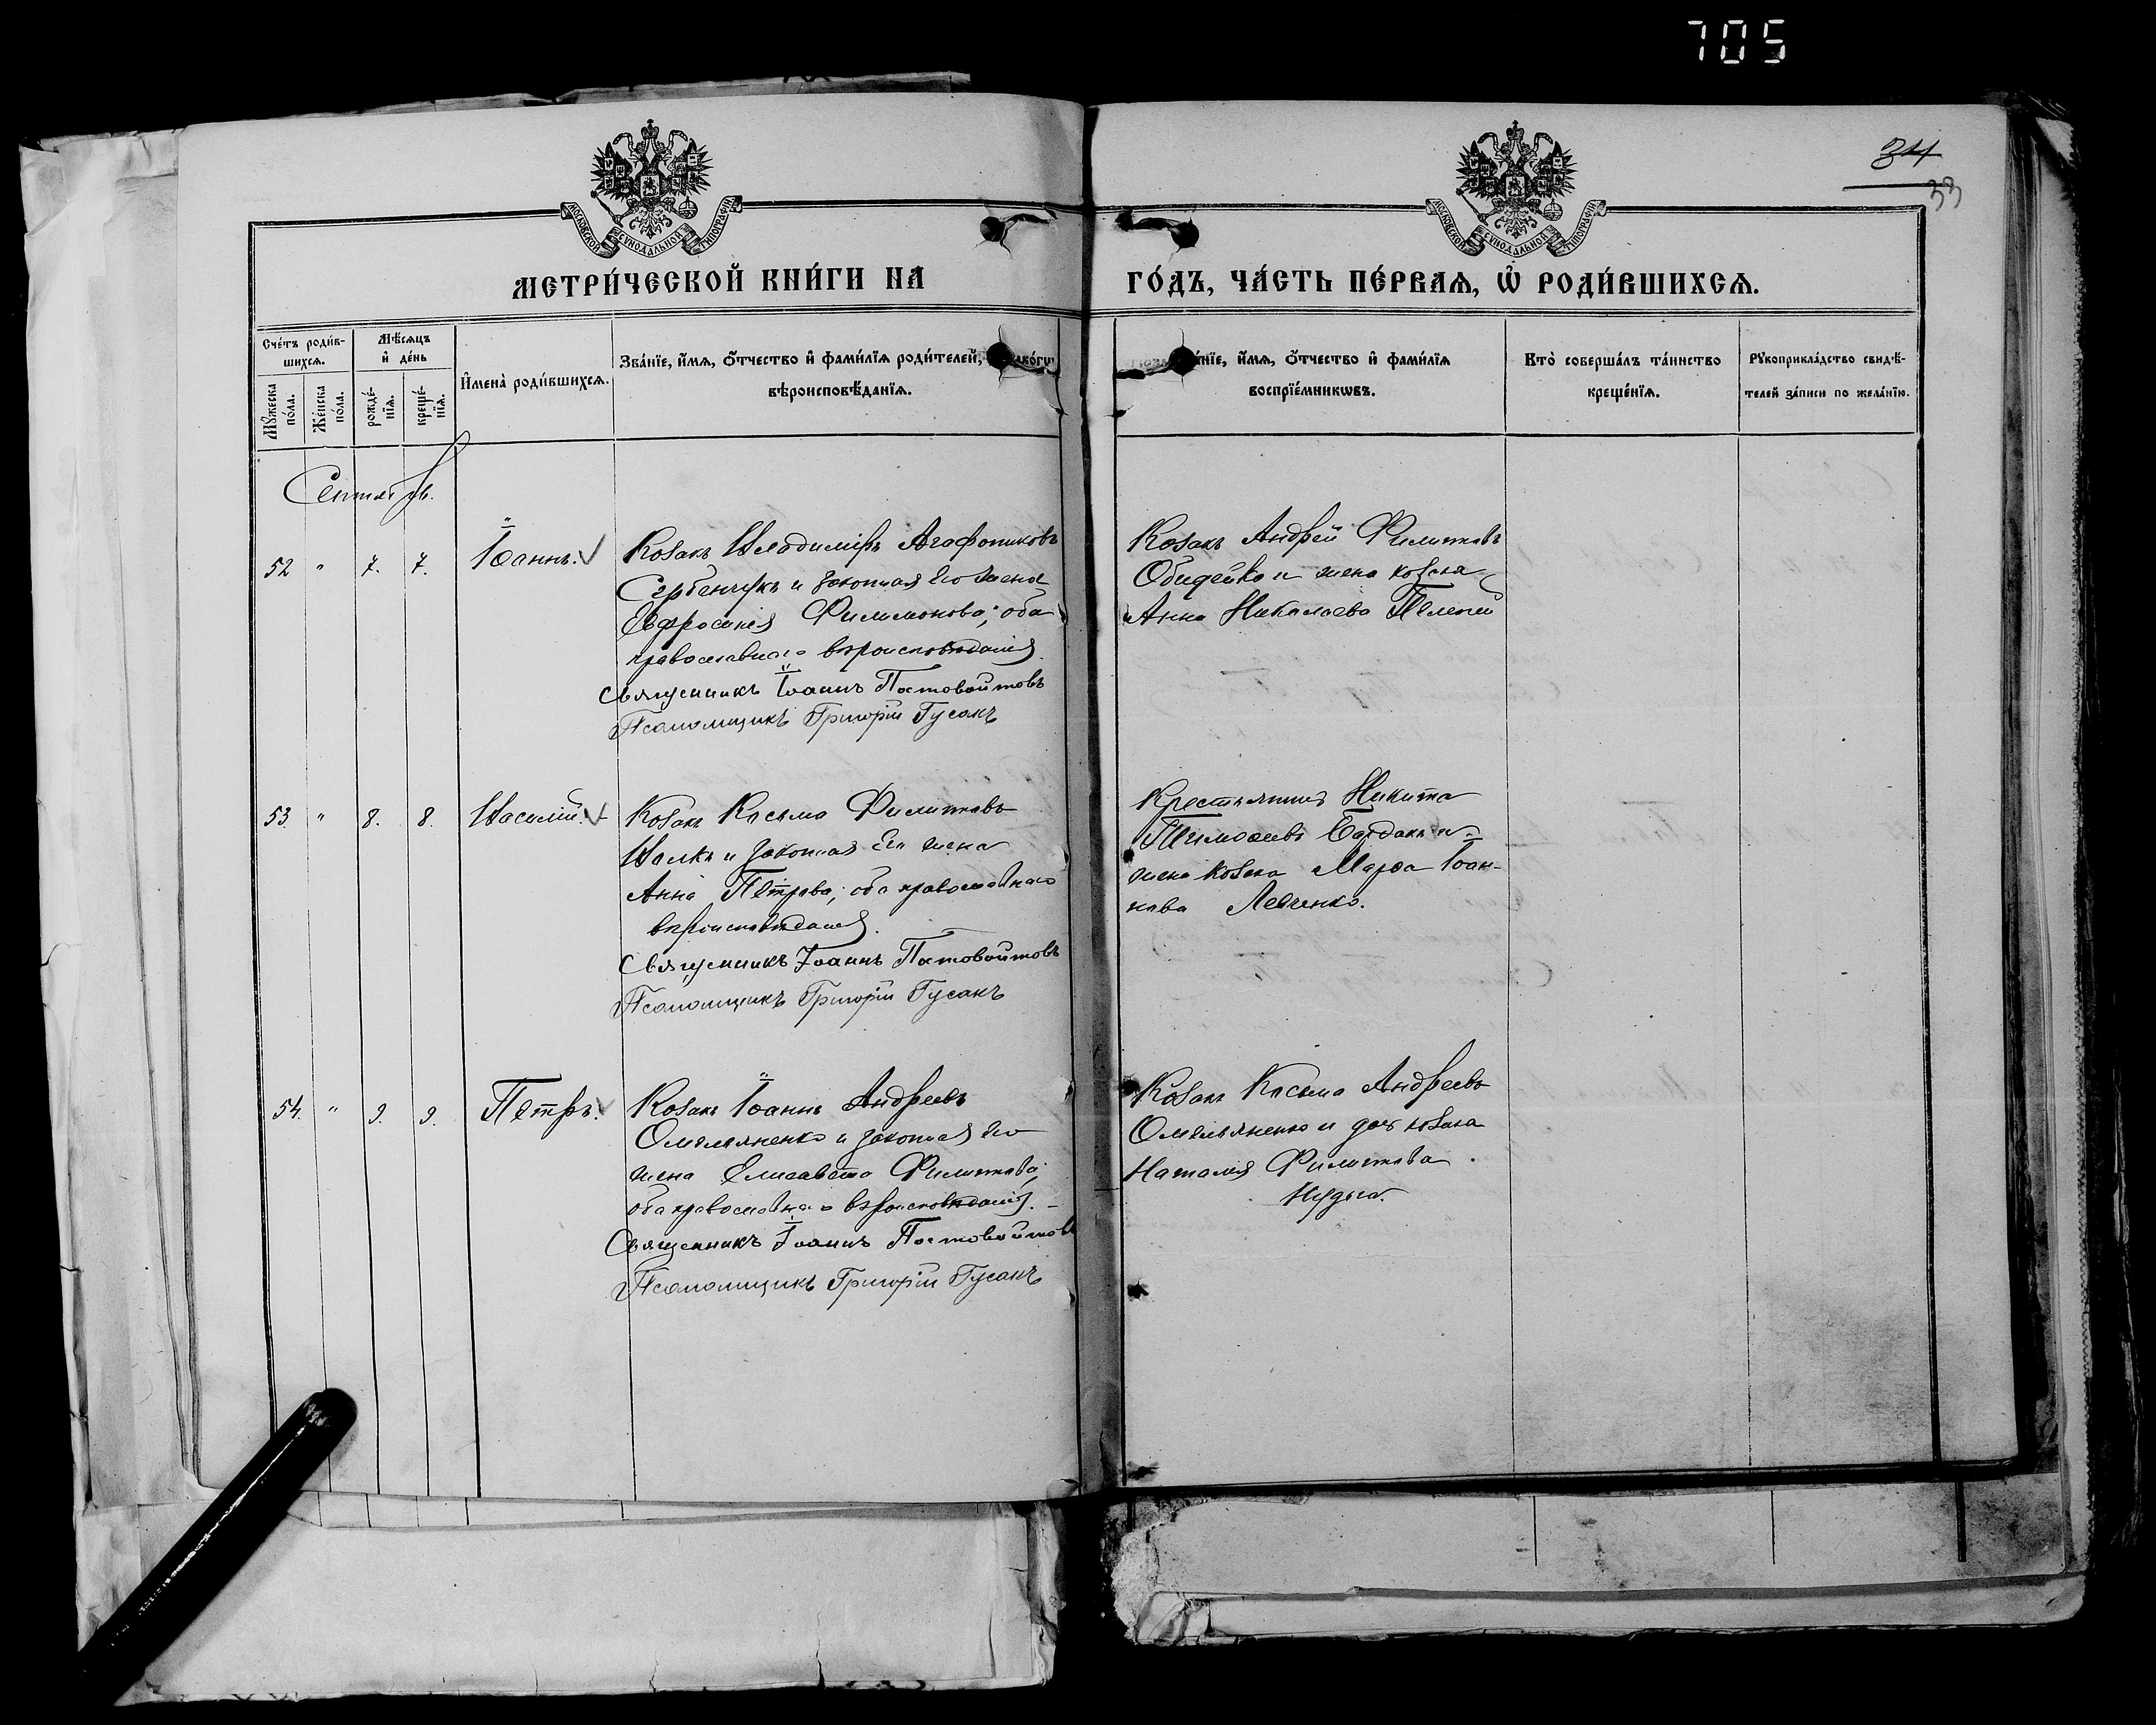 705
34
33
МОСКОВСКОЙ СУНОДАЛЬНОЙ ТИПОГРАФІИ
МОСКОВСКОЙ СУНОДАЛЬНОЙ ТИПОГРАФІИ
МЕТРИ́ЧЕСКОЙ КНИ́ГИ НА
ГО́ДЪ, ЧА́СТЬ ПЕ́РВАѦ, Ѡ҆ РОДИ́ВШИХСѦ.
Сче́тъ роди́в-
шихсѧ.
Мꙋ́жеска по́ла.
Же́нска по́ла.
Мѣ́сѧцъ
и҆ де́нь
рожде́-
нїѧ.
креще́-
нїѧ.
И҆мена̀ роди́вшихсѧ.
Зва́нїе, и҆́мѧ, ѻ҆́тчество и҆ фами́лїѧ роди́телей,
вѣроисповѣ́данїѧ.
нїе, и҆́мѧ, ѻ҆́тчество и҆ фами́лїѧ
воспрїе́мникѡвъ.
Кто̀ соверша́лъ та́инство
креще́нїѧ.
Рꙋкоприкла́дство свидѣ́-
телей за́писи по жела́нїю.
Сентябрь.
52 " 7. 7. Іоаннъ.
Козакъ Владиміръ Агафониковъ
Сербенчукъ и законная его жена
Евфросинія Филимонова; оба
православнаго вѣроисповѣданія
Священникъ Іоаннъ Постовойтовъ
Псаломщикъ Григорій Гусакъ
Козакъ Андрей Филиповъ
Обидейко и жена козака
Анна Николаева Пелепей
53. " 8. 8. Василій.
Козакъ Косьма Филиповъ
Волкъ и законная его жена
Анна Петрова; оба православнаго
вѣроисповѣданія.
Священникъ Іоаннъ Постовойтовъ
Псаломщикъ Григорій Гусакъ
Крестьянинъ Никита
Тимофеевъ и
жена козака Марфа Іоан-
нова Левченко.
54. " 9. 9. Петръ.
Козакъ Іоаннъ Андреевъ
Омельяненко и законная его
жена Елисавета Филипова;
оба православнаго вѣроисповѣданія.
Священникъ Іоаннъ Постовойтовъ
Псаломщикъ Григорій Гусакъ
Козакъ Косьма Андреевъ
Омельяненко и дочь козака
Наталія Филипова